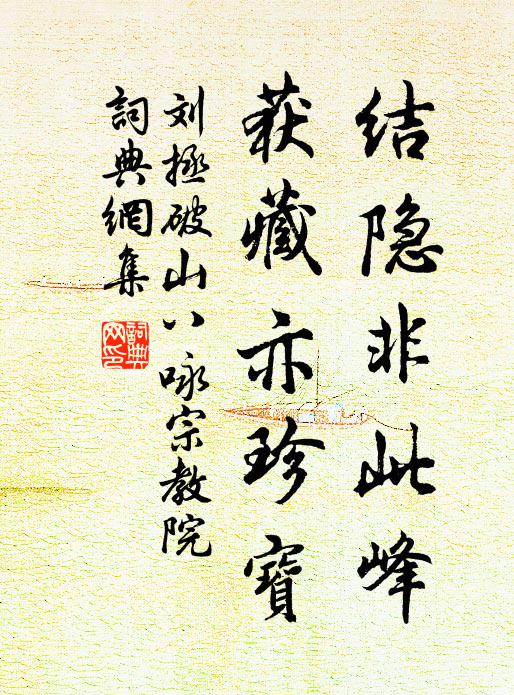 结隐非此峰
获藏亦珍寶
刘拯破山八咏宗教院
詞典網集
詞典
网印